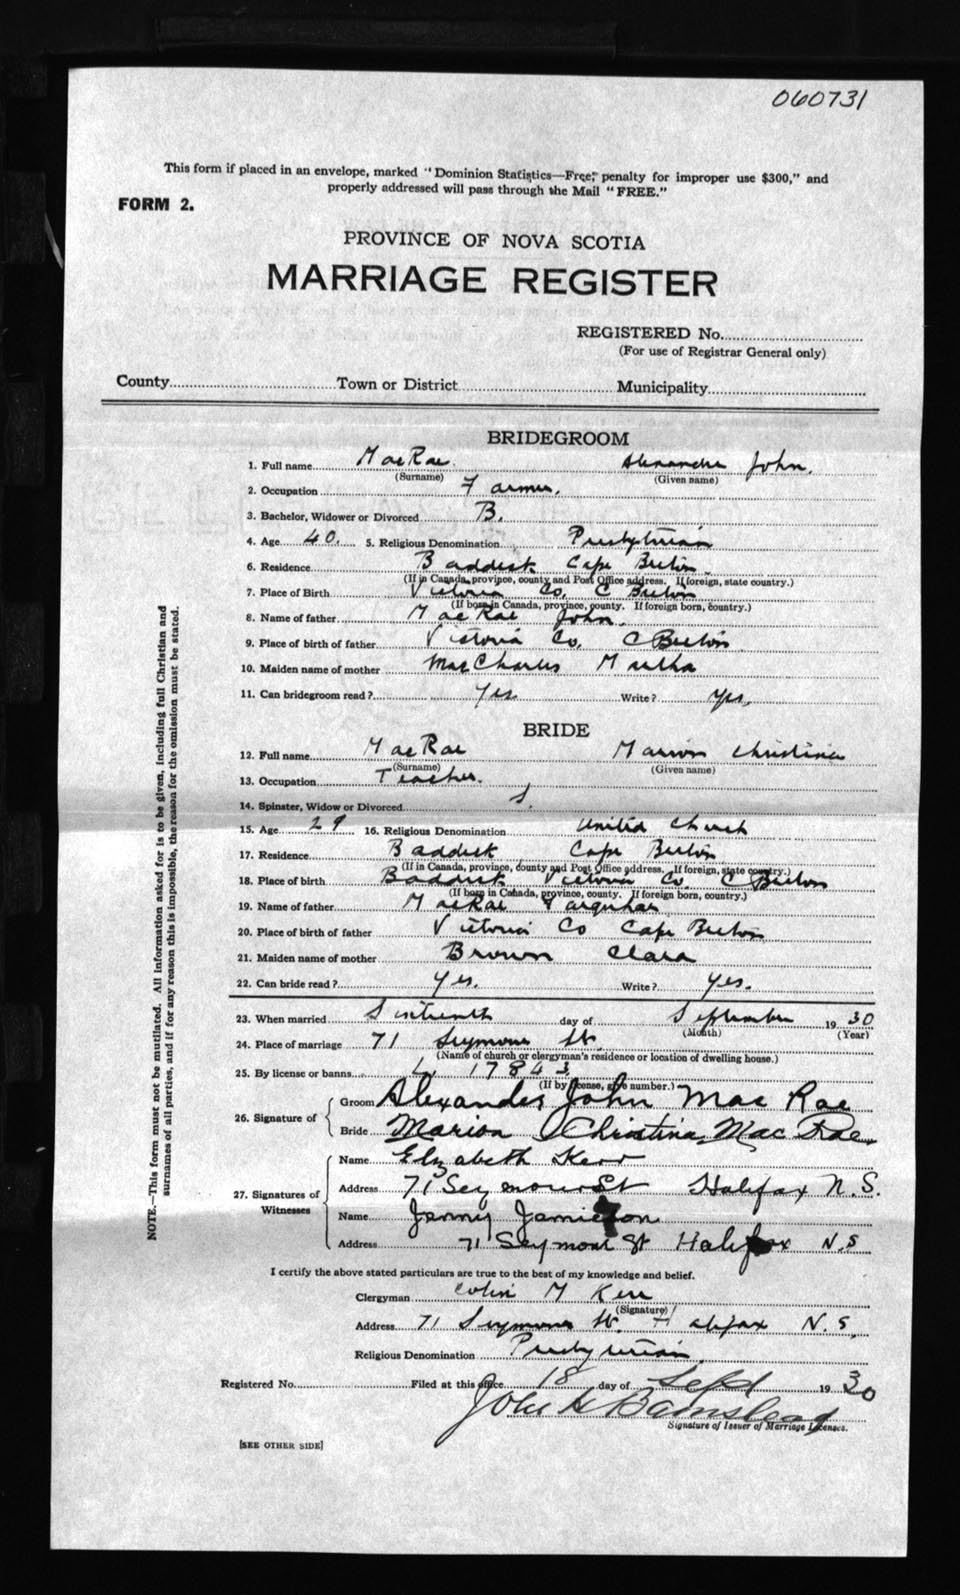 060731
This form if placed in an envelope, marked "Dominion Statistics—Free; penalty for improper use $300," and
properly addressed will pass through the Mail "FREE."
FORM 2.
PROVINCE OF NOVA SCOTIA
MARRIAGE REGISTER
REGISTERED No.
(For use of Registrar General only)
County Town or District Municipality
BRIDEGROOM
1. Full name MacRae Alexander John.
(Surname) (Given name)
2. Occupation Farmer.
3. Bachelor, Widower or Divorced B.
4. Age 40. 5. Religious Denomination Presbyterian
6. Residence Baddeck Cape Breton
(If in Canada, province, county and Post Office address. If foreign, state country.)
7. Place of Birth Victoria Co. C Breton
(If born in Canada, province, county. If foreign born, country.)
8. Name of father MacRae John.
9. Place of birth of father Victoria Co. C Breton
10. Maiden name of mother MacCharles Martha
11. Can bridegroom read? Yes Write? Yes.
BRIDE
12. Full name MacRae Marion Christina
(Surname) (Given name)
13. Occupation Teacher.
14. Spinster, Widow or Divorced S.
15. Age 29 16. Religious Denomination United Church
17. Residence Baddeck Cape Breton
(If in Canada, province, county and Post Office address. If foreign, state country.)
18. Place of birth Baddeck Victoria Co. C Breton
(If born in Canada, province, county. If foreign born, country.)
19. Name of father MacRae Farquhar
20. Place of birth of father Victoria Co Cape Breton
21. Maiden name of mother Brown Clara
22. Can bride read? Yes. Write? Yes.
23. When married Sixteenth day of September 1930
(Month) (Year)
24. Place of marriage 71 Seymour St.
(Name of church or clergyman's residence or location of dwelling house.)
25. By license or banns L 17843
(If by license, give number.)
26. Signature of Groom Alexander John MacRae
Bride Marion Christina MacRae
27. Signatures of Witnesses Name Elizabeth Kerr
Address 71 Seymour St Halifax N.S.
Name Jenny Jamieson
Address 71 Seymour St Halifax N.S
I certify the above stated particulars are true to the best of my knowledge and belief.
Clergyman Colin M Kerr
(Signature)
Address 71 Seymour St. Halifax N.S.
Religious Denomination Presbyterian
Registered No. Filed at this office 18 day of Sept 1930
John H Barnstead
Signature of Issuer of Marriage Licenses.
[SEE OTHER SIDE]
NOTE.—This form must not be mutilated. All information asked for is to be given, including full Christian and
surnames of all parties, and if for any reason this is impossible, the reason for the omission must be stated.